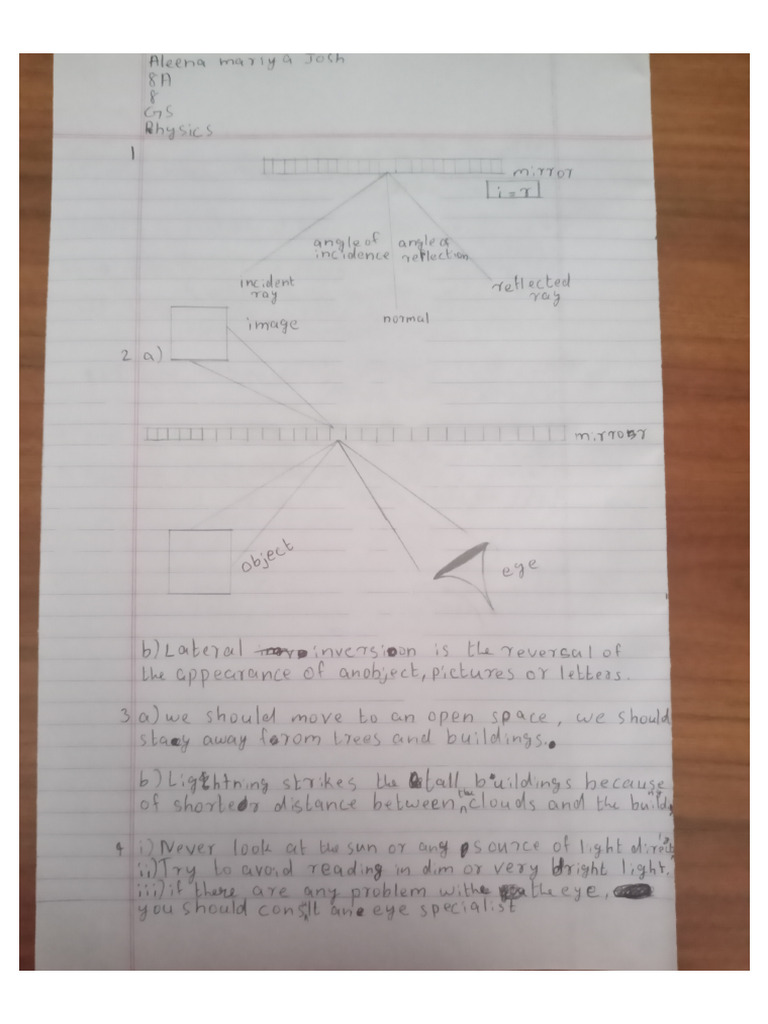 Aleena mariya Josh
8A
8
GS
Physics
1
mirror
i = r
angle of incidence
angle of reflection
incident ray
normal
reflected ray
image
2 a)
mirror
object
eye
b) Lateral inversion is the reversal of
the appearance of anobject, pictures or letters.
3 a) we should move to an open space, we should
stay away from trees and buildings.
b) Lightning strikes the tall buildings because
of shorter distance between the clouds and the
4 i) Never look at the sun or any source of light
ii) Try to avoid reading in dim or very bright light.
iii) if there are any problem with the eye,
you should conslt an eye specialist